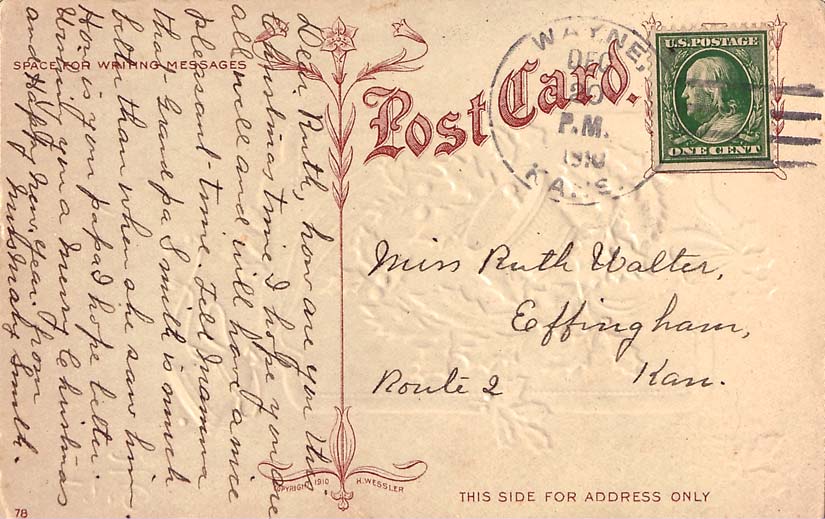 SPACE FOR WRITING MESSAGES
Post Card.
WAYNE,
DEC
20
P.M.
1910
KANS.
U.S. POSTAGE
ONE CENT
Dear Ruth, how are you this
Christmas time I hope you are
all well and will have a nice
pleasant time. Tell Mamma
that Grand pa Smith is much
better than when she saw him.
How is you papa I hope better.
Wishing you a Merry Christmas
and Happy New Year. from
Mrs Mary Smith.
Miss Ruth Walter,
Effingham,
Kan.
Route 2
COPYRIGHT 1910 H. WESSLER
THIS SIDE FOR ADDRESS ONLY
78